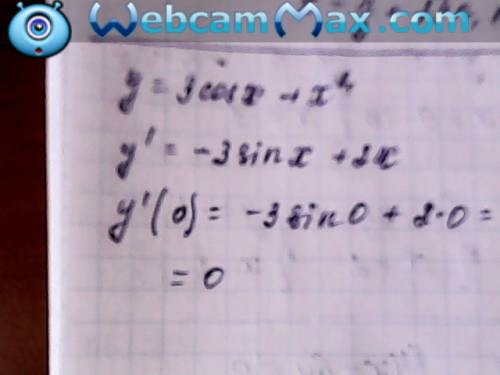 WebcamMax.com
y = 3cosx + x²
y' = -3sinx + 2x
y'(0) = -3sin0 + 2·0 =
= 0